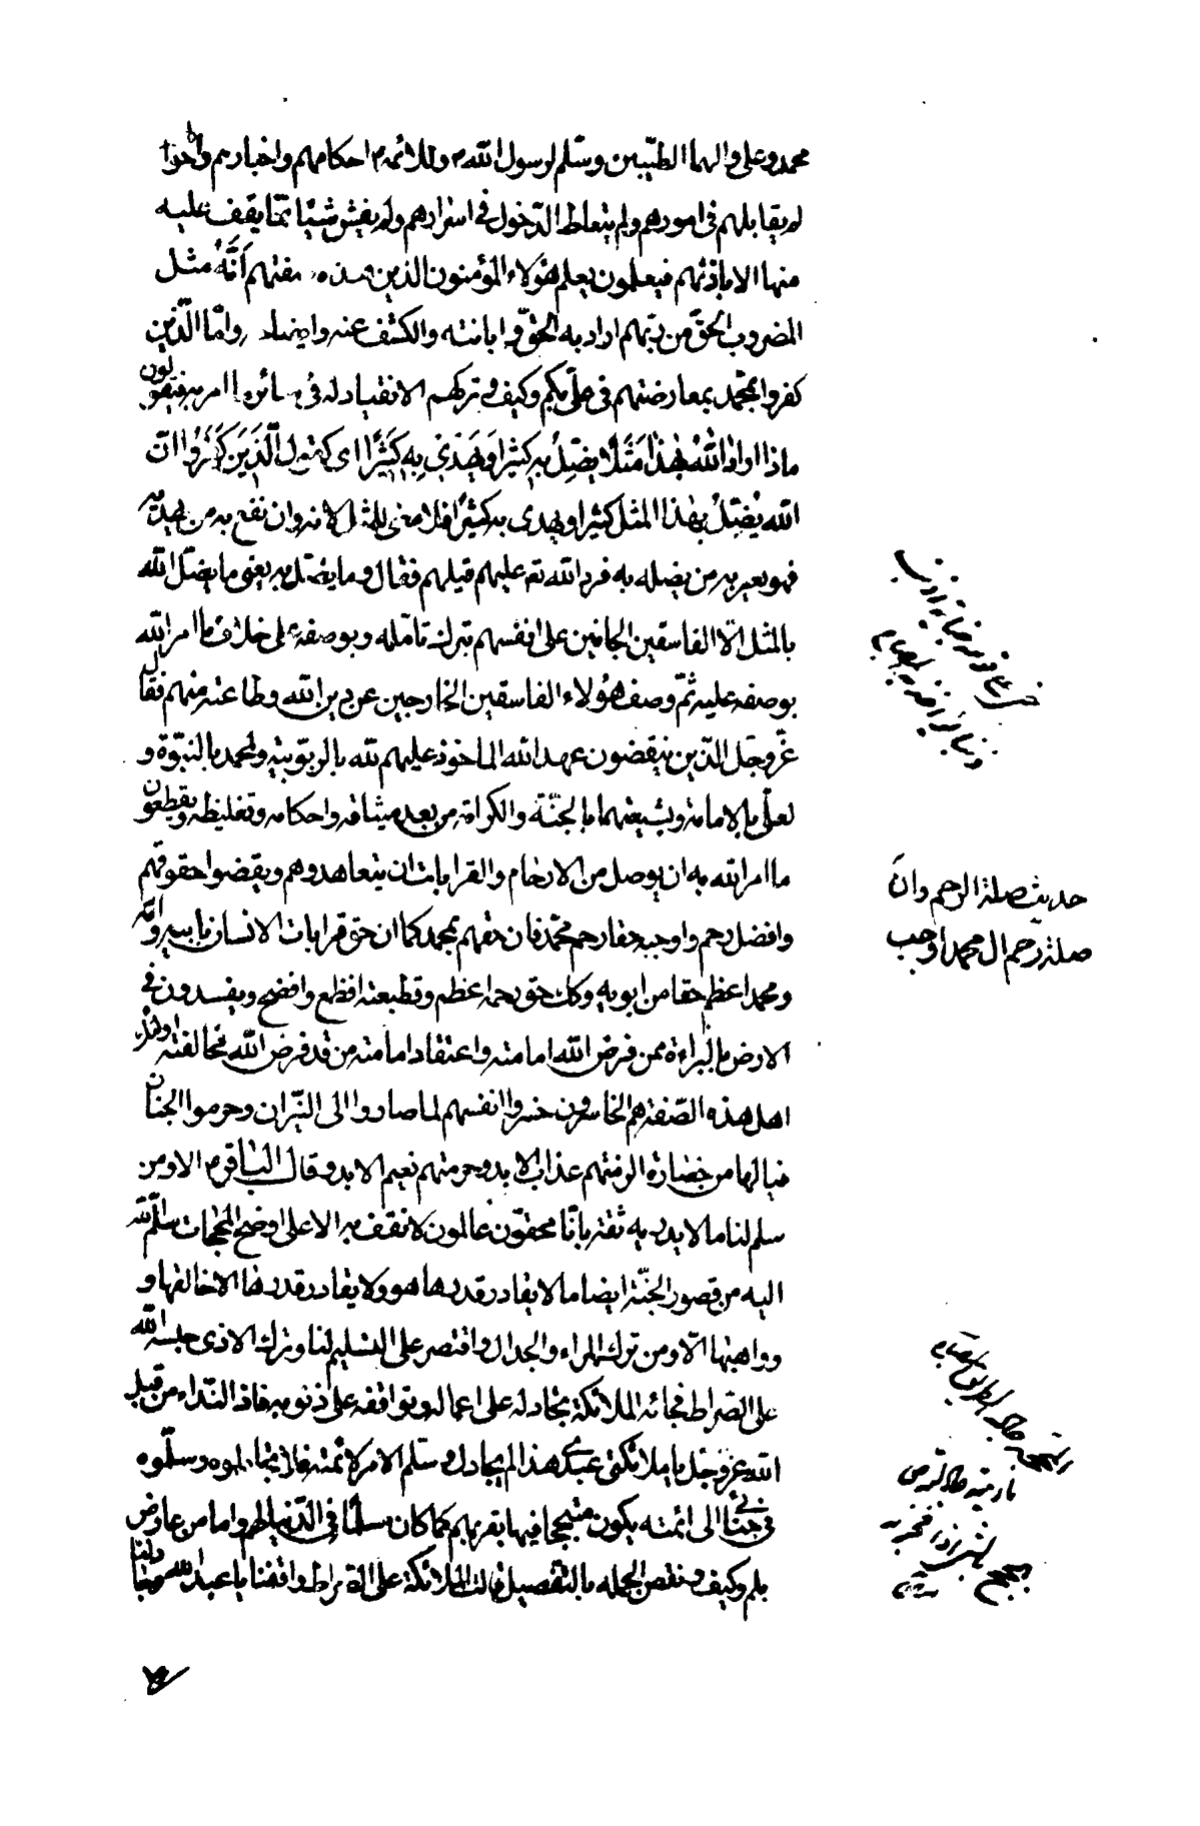 محمد وعلي والهما الطيبين وسلم لرسول الله ص وللائمة ع احكامهم واخبارهم واحوا
لم يقابلهم في امورهم ولم يتعاط الدخول في اسرارهم ولم يفش شيئا مما يقف عليه
منها الا باذنهم فيعلمون يعلم هؤلاء المؤمنون الذين هذه صفتهم أَنَّهُ مثل
المضروب الحق من ربهم اراد به الحق وابانته والكشف عنه وايضاء واما الذين
كفروا بمحمد بمعارضتهم في علي بلم وكيف وتركهم الانقياد له في سائر ما امر به فيقولون
ماذا اراد الله بهذا مثلا يضل به كثيرا ويهدي به كثيرا اى يقول الذين كفروا ان
الله يضل بهذا المثل كثيرا ويهدى به كثيرا فلا معنى للمثل لانه وان نفع به من يهديه
فهو يضر به من يضله به فرد الله تع عليهم قيلهم فقال وما يضل به يعني ما يضل الله
بالمثل الا الفاسقين الجانين على انفسهم بترك تامله وبوصفه على خلاف ما امر الله
بوصفه عليه ثم وصف هؤلاء الفاسقين الخارجين عن دين الله وطاعته منهم فقال
عز وجل الذين ينقضون عهد الله الماخوذ عليهم لله بالربوبية ولمحمد بالنبوة و
لعلي بالامامة ولشيعتهما بالجنة والكرامة من بعد ميثاقه واحكامه وتغليظه ويقطعون
ما امر الله به ان يوصل من الارحام والقرابات ان يتعاهدوهم ويقضوا حقوقهم
وافضل رحم واوجبه حقا رحم محمد فان حقهم بمحمد كما ان حق قرابات الانسان بابيه وامه
ومحمد اعظم حقا من ابويه وكك حق رحمه اعظم وقطيعته افظع وافضح ويفسدون في
الارض بالبراءة ممن فرض الله امامته واعتقاد امامة من قد فرض الله مخالفته اولئك
اهل هذه الصفة هم الخاسرون خسروا انفسهم لما صاروا الى النيران وحرموا الجنان
فيا لها من خسارة الزمتهم عذاب الابد وحرمتهم نعيم الابد وقال الباقر ع الا ومن
سلم لنا ما لا يدريه ثقة بانا محقون عالمون لا نقف به الا على اوضح المحجات سلم الله
اليه من قصور الجنة ايضا ما لا يقادر قدرها هو ولا يقادر قدرها الا خالقها و
وواهبها الا ومن ترك المراء والجدال واقتصر على التسليم لنا وترك الاذى حبسه الله
على الصراط فجائه الملائكة تجادله على اعماله وتواقفه على ذنوبه فاذا النداء من قبل
الله عز وجل يا ملائكتي عبدي هذا لم يجادل وسلم الامر لائمته فلا تجادلوه وسلموه
في جناني الى ائمته يكون متبجحا فيها بقربهم كما كان مسلما في الدنيا لهم واما من عارض
بلم وكيف ونقض الجملة بالتفصيل قالت الملائكة على الصراط واقفنا يا عبد الله
حديث صلة الرحم وان
صلة رحم ال محمد اوجب